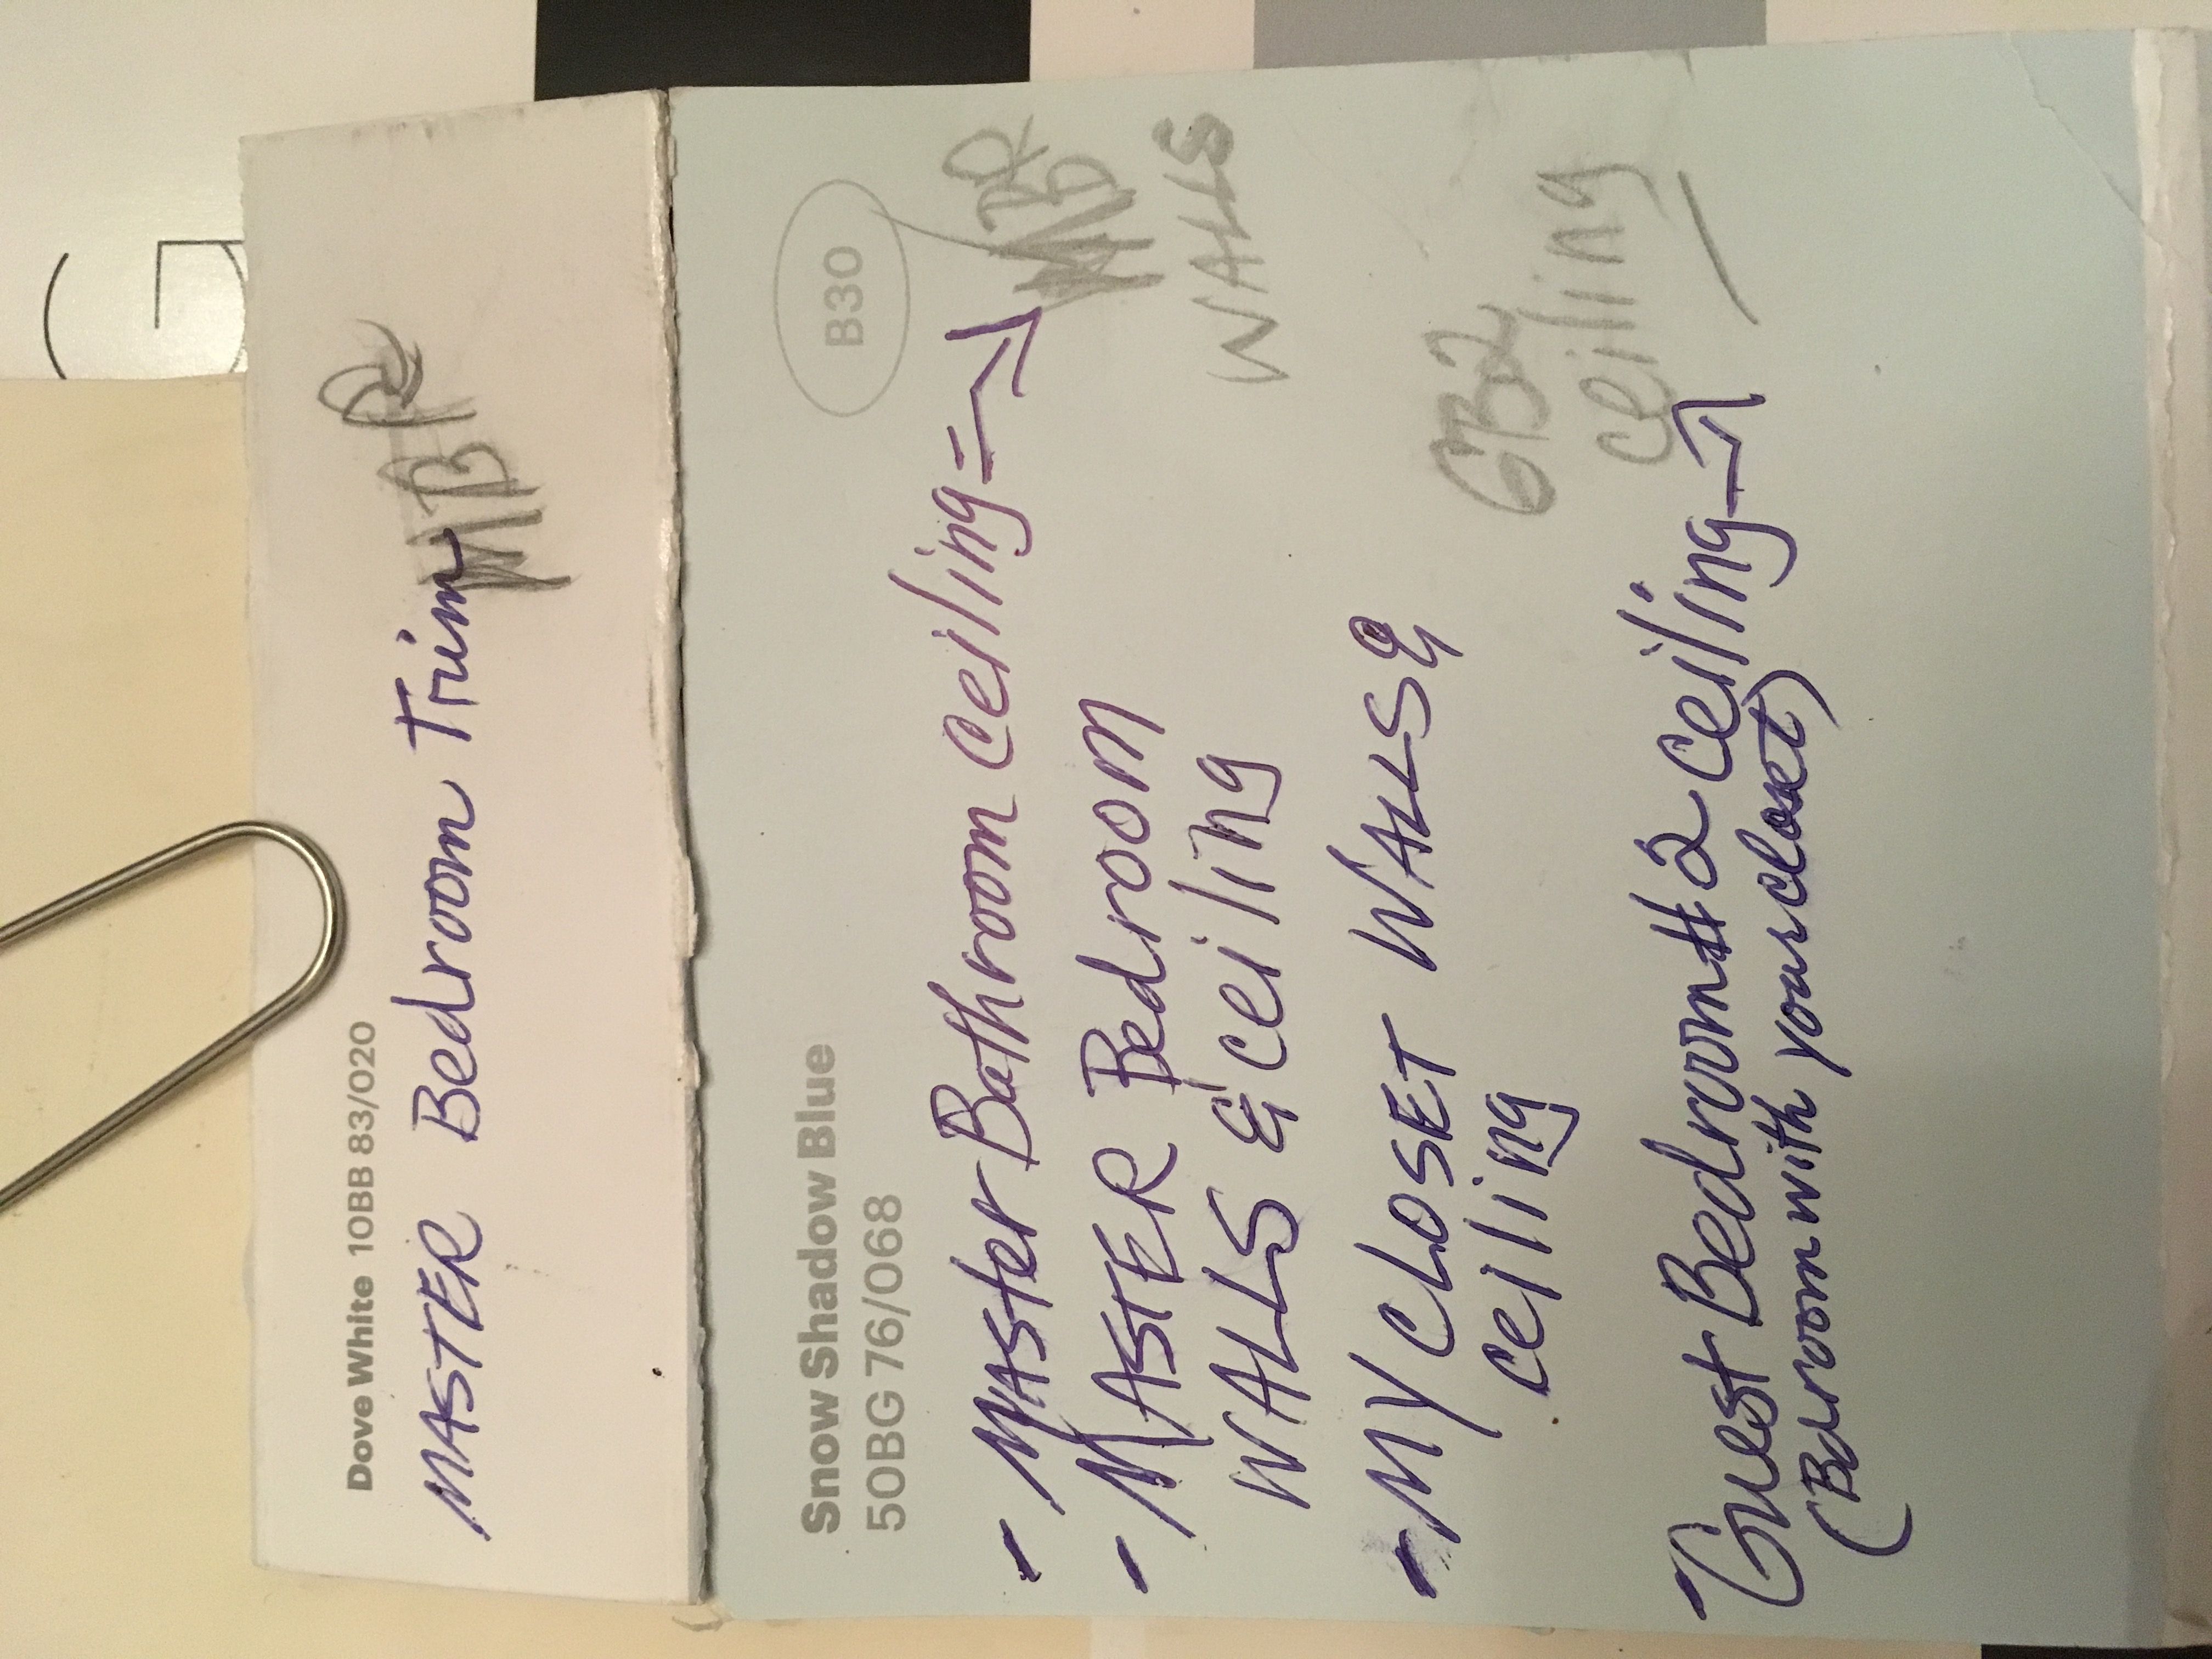 Dove White 10BB 83/020
MBR
MASTER Bedroom Trim
B30
Snow Shadow Blue
50BG 76/068
MBR
WALLS
- Master Bathroom Ceiling =>
- MASTER Bedroom
WALLS & Ceiling
- MY CLOSET WALLS &
ceiling
GB2
Ceiling
- Guest Bedroom #2 Ceiling →
(Bdroom with your closet)